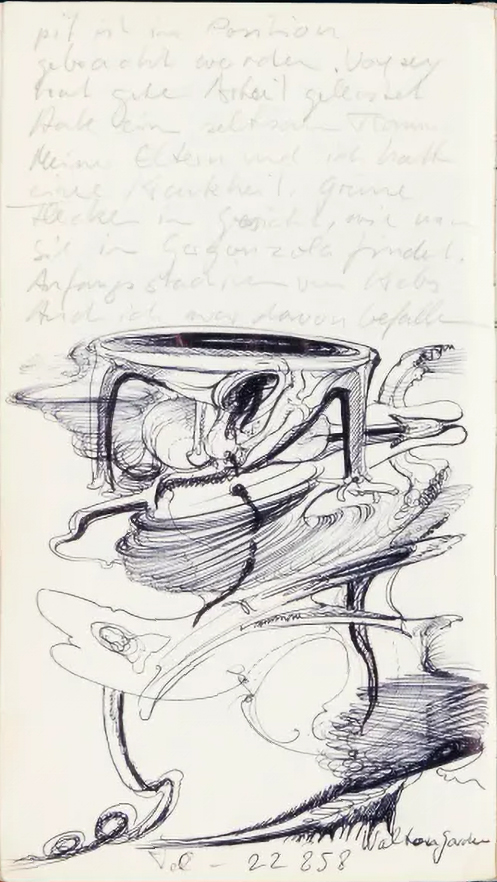 pit ist in Position
gebracht worden. Voysey
hat gute Arbeit geleistet
Hatte ein seltsamen Traum
Meine Eltern und ich hatten
eine Krankheit. Grüne
Flecken im Gesicht, wie man
sie in Gorgonzola findet.
Anfangsstadium von Krebs
Und ich war davon befallen
Tel - 22 858